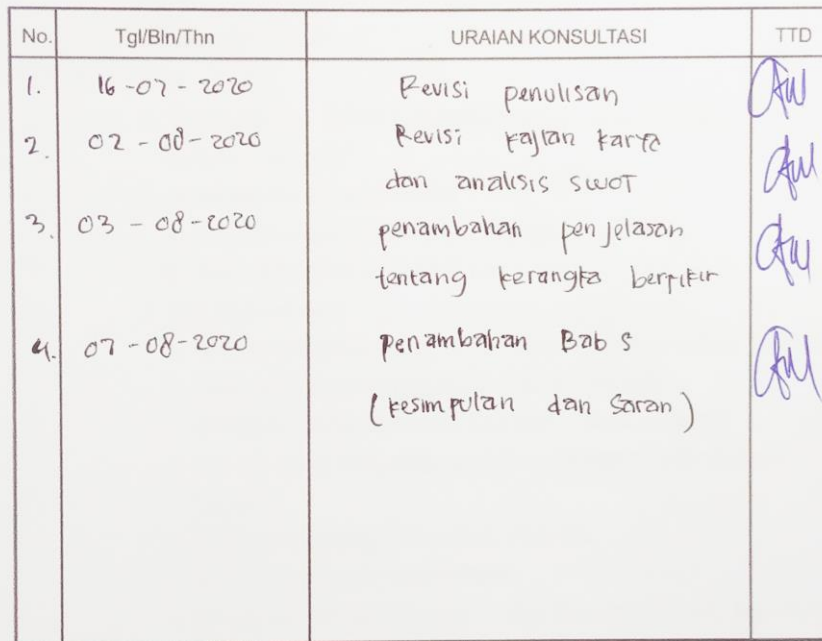 No. Tgl/Bln/Thn URAIAN KONSULTASI TTD
1. 16-07-2020 Revisi penulisan
2. 02-08-2020 Revisi kajian karya
dan analisis SWOT
3. 03-08-2020 penambahan penjelasan
tentang kerangka berpikir
4. 07-08-2020 penambahan Bab 5
(kesimpulan dan saran)